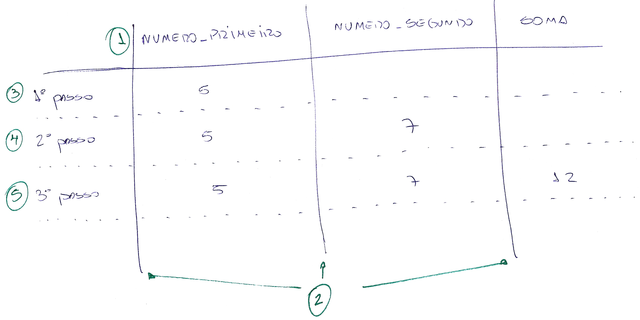 1 NUMERO_PRIMEIRO NUMERO_SEGUNDO SOMA
3 1º passo 5
4 2º passo 5 7
5 3º passo 5 7 12
2